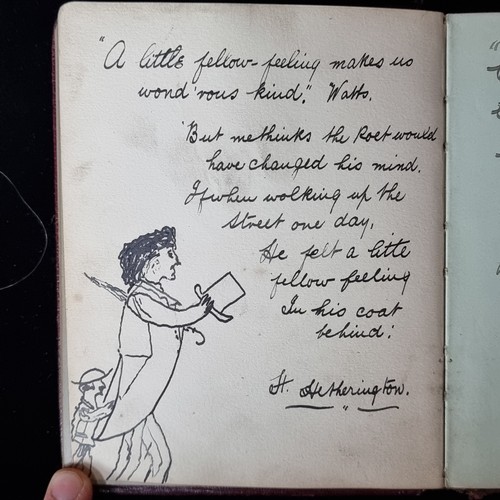 "A little fellow-feeling makes us
wond'rous kind", Watts.
'But methinks the Poet would
have changed his mind.
If when walking up the
street one day,
He felt a little
fellow feeling
In his coat
behind!
H. Hetherington.